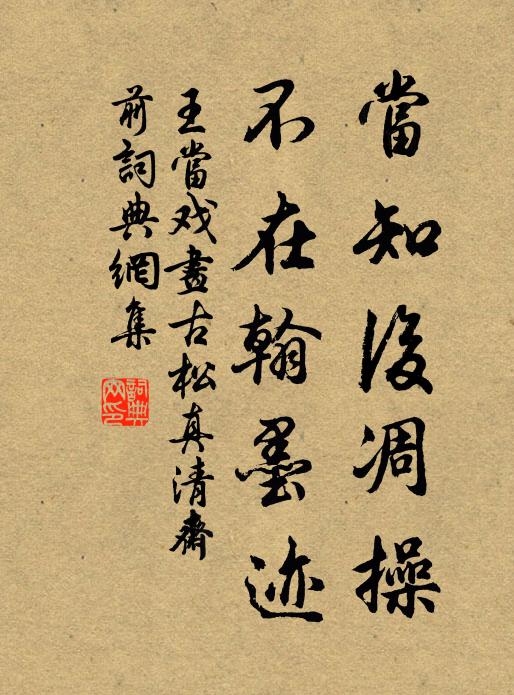 當知後凋操
不在翰墨迹
王當戏畫古松真清齋
前詞典網集
詞典网印